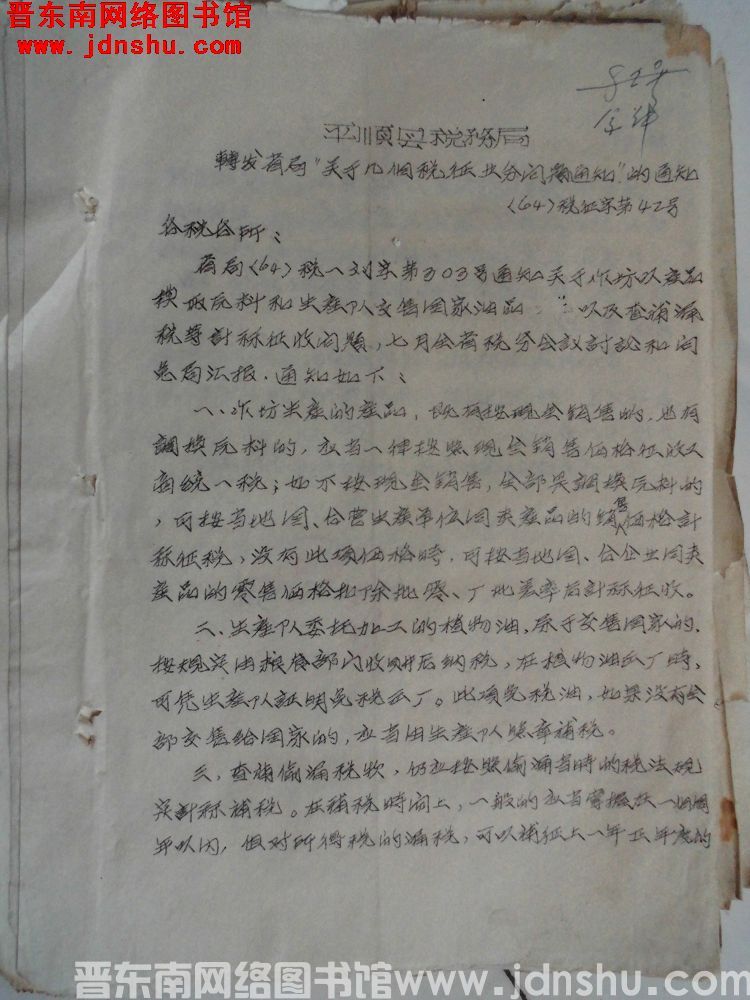 晋东南网络图书馆
www.jdnshu.com
平順县税務局
轉发省局“关于几個税征业务问题通知”的通知
〈64〉税征字第42号
各税务所：
省局〈64〉税一刘字第303号通知关于作坊以产品
换取瓦料和生產队交售国家油品 以及查補漏
税等計称征收问題，七月全省税务会议討論和向
总局汇报．通知如下：
一、作坊生産的産品，既有按现金銷售的，也有
調换瓦料的，应当一律按照现金銷售価格征收工
商統一税；如不按现金銷售，全部是調换瓦料的
，可按当地国、合营生産单位同类産品的銷售価格計
称征税，没有此項価格時，可按当地国、合企业同类
産品的零售価格扣除批零、厂批差率后計称征收。
二、生産队委托加工的植物油，屬于交售国家的、
按规定由粮食部门收購后纳税，在植物油出厂時、
可凭生産队証明免税出厂。此项免税油，如果没有全
部交售给国家的，应当由生産队照章補税。
三，查補偷漏税款，仍应按照偷漏当時的税法规
定計称補税。在補税時间上，一般的应当掌握在一個周
年以内，但对所得税的漏税，可以補征上一年正年度的
晋东南网络图书馆www.jdnshu.com